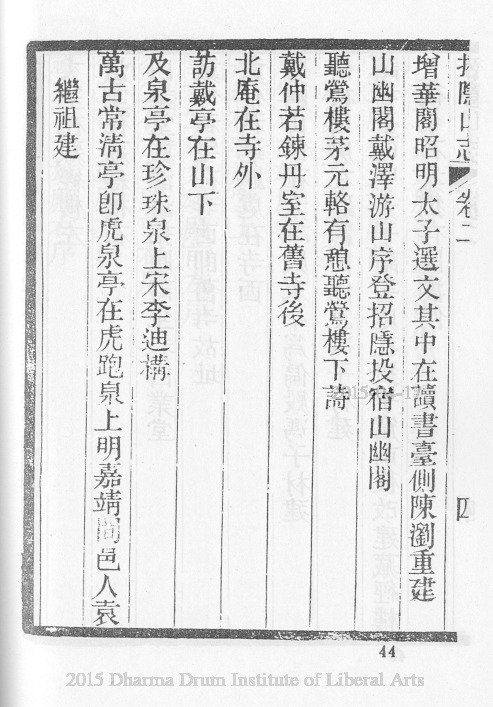 招隱山志 卷二 四
增華閣昭明太子選文其中在讀書臺側陳瀏重建
山幽閣戴澤游山序登招隱投宿山幽閣
聽鶯樓茅元輅有憩聽鶯樓下詩
戴仲若鍊丹室在舊寺後
北庵在寺外
訪戴亭在山下
及泉亭在珍珠泉上宋李迪構
萬古常清亭卽虎泉亭在虎跑泉上明嘉靖間邑人袁
繼祖建
44
2015 Dharma Drum Institute of Liberal Arts